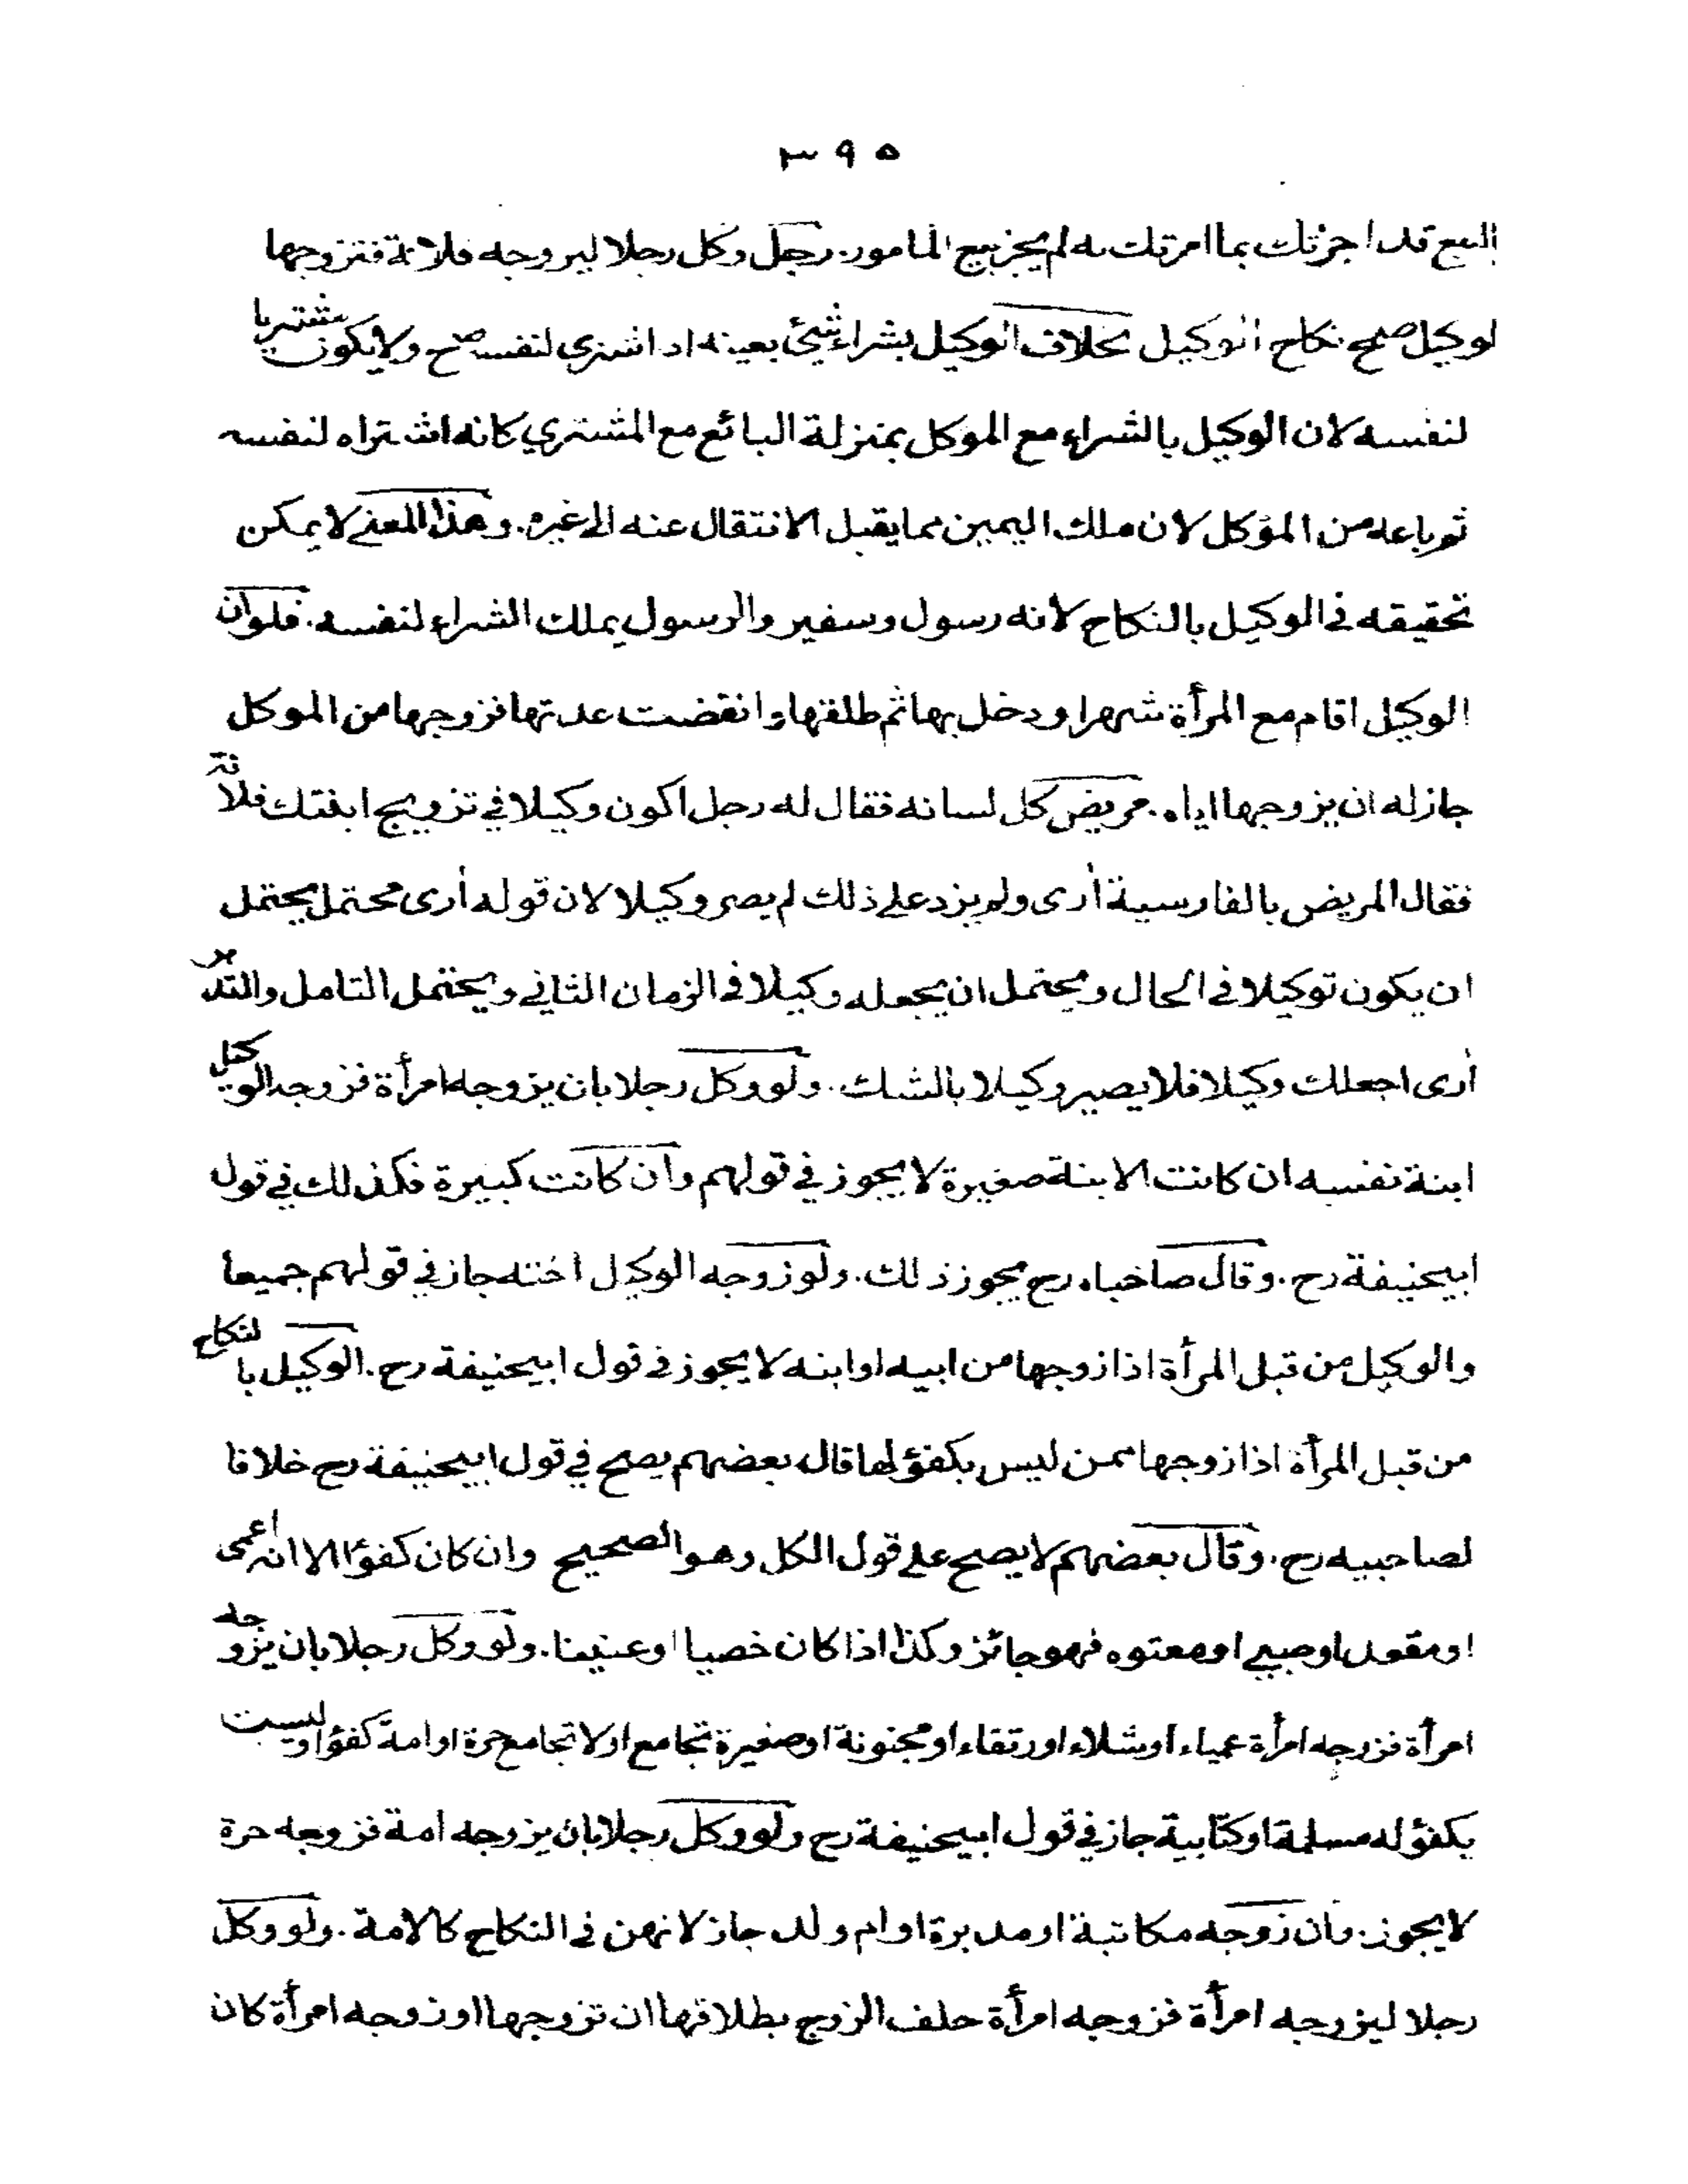 ٣٩٥
البيع قد اجزتك بما امرتك به لم يجز بيع المامور. رجل وكل رجلا ليزوجه فلانة فتزوجها
لوكيل صح نكاح الوكيل بخلاف الوكيل بشراء شيئ بعينه اذا اشترى لنفسه صح ولايكون مشتريا
لنفسه لان الوكيل بالشراء مع الموكل بمنزلة البائع مع المشتري كانه اشتراه لنفسه
ثم باعه من المؤكل لان ملك اليمين مما يقبل الانتقال عنه الى غيره. وهذا المعنى لا يمكن
تحقيقه في الوكيل بالنكاح لانه رسول وسفير والرسول يملك الشراء لنفسه. فلو ان
الوكيل اقام مع المرأة شهرا ودخل بها ثم طلقها وانقضت عدتها فزوجها من الموكل
جاز له ان يزوجها اياه. مريض كل لسانه فقال له رجل اكون وكيلا في تزويج ابنتك فلانة
فقال المريض بالفارسية أرى ولم يزد على ذلك لم يصر وكيلا لان قوله أرى محتمل يحتمل
ان يكون توكيلا في الحال ويحتمل ان يجعله وكيلا في الزمان الثاني ويحتمل التامل والتدبر
أرى اجعلك وكيلا فلا يصير وكيلا بالشك. ولو وكل رجلا بان يزوجه امرأة فزوجه الوكيل
ابنة نفسه ان كانت الابنة صغيرة لا يجوز في قولهم وان كانت كبيرة فكذلك في قول
ابيحنيفة رح. وقال صاحباه رح يجوز ذلك. ولو زوجه الوكيل اخته جاز في قولهم جميعا
والوكيل من قبل المرأة اذا زوجها من ابيه او ابنه لا يجوز في قول ابيحنيفة رح. الوكيل بالنكاح
من قبل المرأة اذا زوجها ممن ليس بكفؤ لها قال بعضهم يصح في قول ابيحنيفة رح خلافا
لصاحبيه رح. وقال بعضهم لا يصح على قول الكل وهو الصحيح وان كان كفؤا الا انه اعمى
او مقعد او صبي او معتوه فهو جائز وكذا اذا كان خصيا او عنينا. ولو وكل رجلا بان يزوجه
امرأة فزوجه امرأة عمياء او شلاء او رتقاء او مجنونة او صغيرة تجامع او لا تجامع حرة او امة كفؤا او ليست
بكفؤ له مسلمة او كتابية جاز في قول ابيحنيفة رح ولو وكل رجلا بان يزوجه امة فزوجه حرة
لا يجوز. وان زوجه مكاتبة او مدبرة او ام ولد جاز لانهن في النكاح كالامة. ولو وكل
رجلا ليزوجه امرأة فزوجه امرأة حلف الزوج بطلاقها ان تزوجها او زوجه امرأة كان